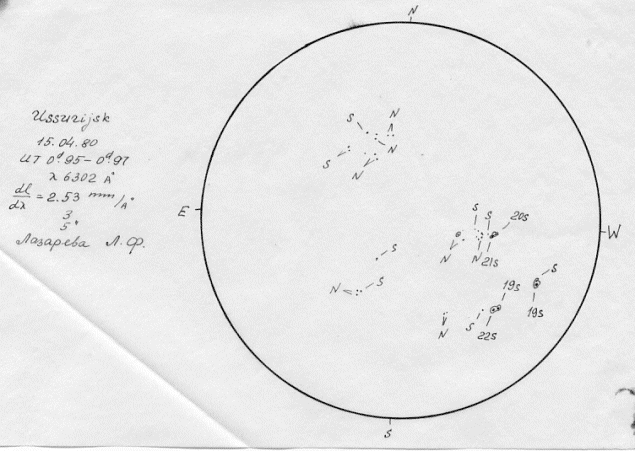 Ussurijsk
15.04.80
UT 0ᵈ.95-0ᵈ.97
λ 6302 A°
dl/dλ = 2.53 mm/A°
3
5"
Лазарева Л.Ф.
N
S
N
S
N
N
E
S
S
20s
W
N
N
21s
S
N
S
19s
S
19s
S
N
22s
S